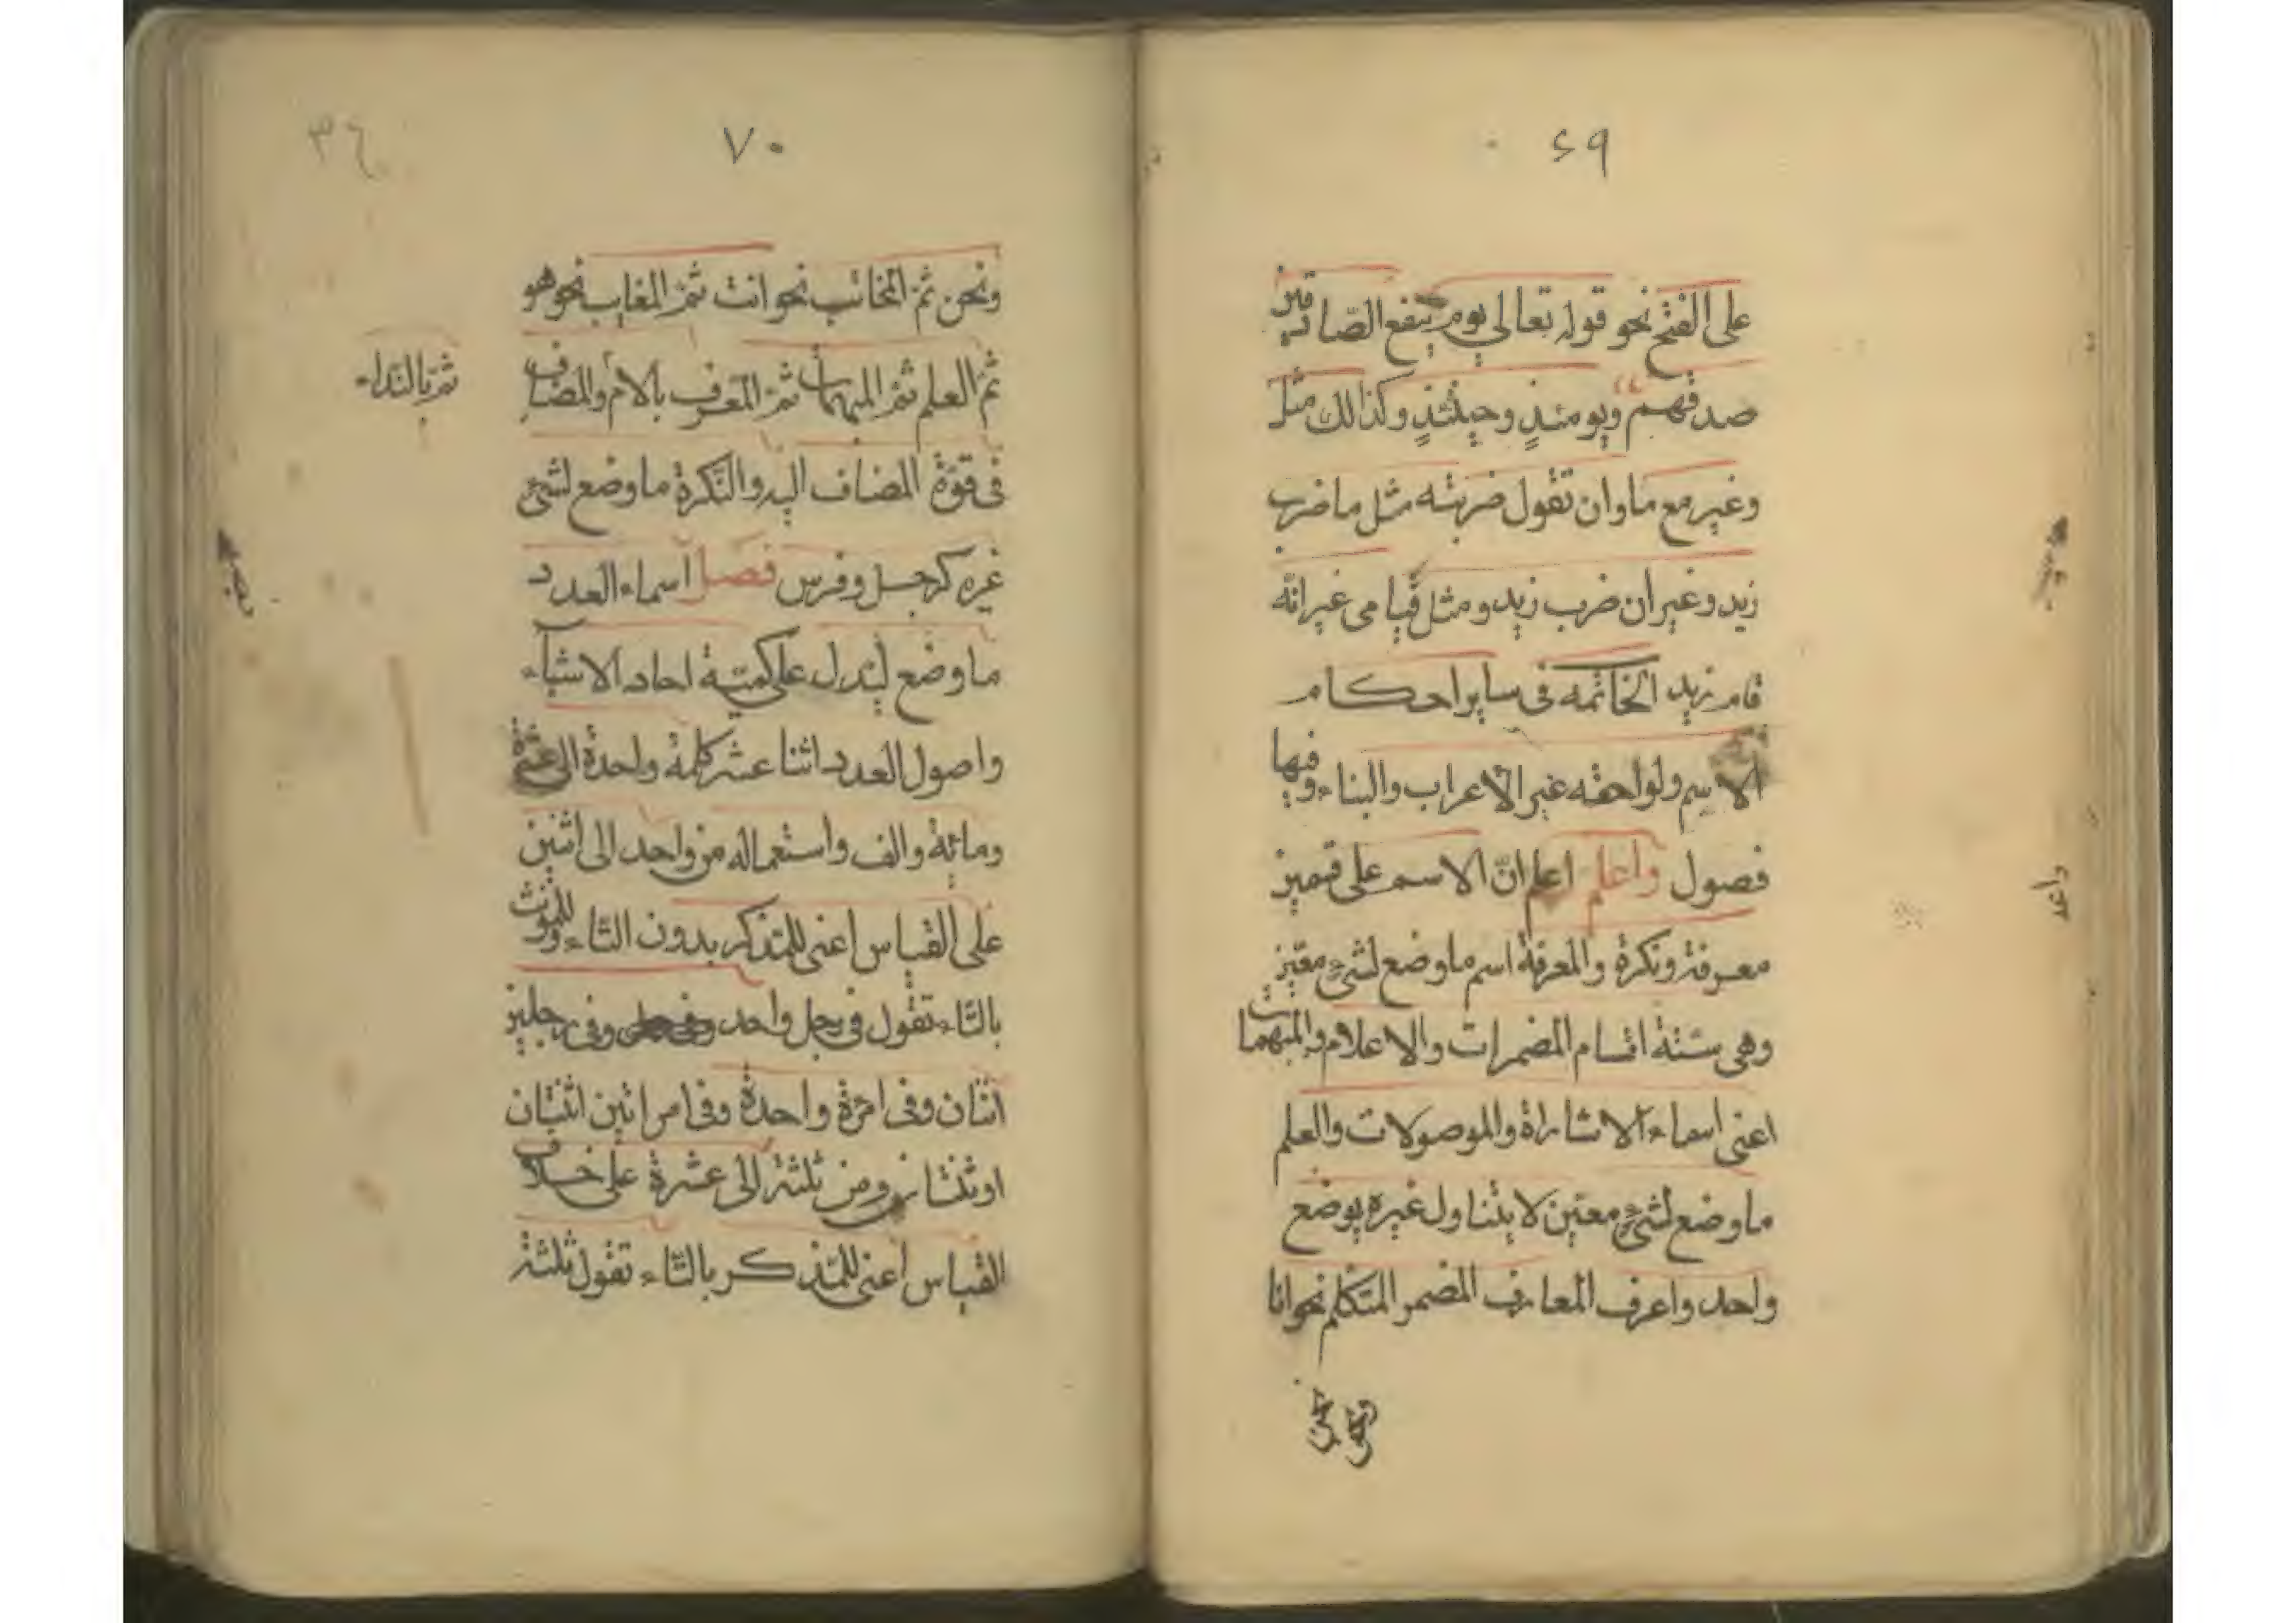 ۶۹
على الفتح نحو قوله تعالى يوم ينفع الصّادقين
صدقهم ويومئذٍ وحينئذٍ وكذالك مثل
وغير مع ما وان تقول ضربته مثل ما ضرب
زيد وغير ان ضرب زيد ومثل قيامى غير انّه
قام زيد الخاتمه فى ساير احكام
الاسم ولواحقه غير الاعراب والبناء وفيها
فصول واعلم اعلم انّ الاسم على قسمين
معرفة ونكرة والمعرفة اسم ما وضع لشئ معيّن
وهى ستة اقسام المضمرات والاعلام والمبهمات
اعنى اسماء الاشارة والموصولات والعلم
ما وضع لشئ معيّن لا يتناول غيره بوضع
واحد واعرف المعارف المضمر المتكلم نحو انا
ونحن
۷۰
۳٤
ونحن ثمّ المخائب نحو انت ثمّ المغايب نحو هو
ثمّ العلم ثمّ المبهمات ثمّ المعرف بالام والمضاف
ثمّ بالنداء
فى قوّة المضاف اليه والنّكرة ما وضع لشئ
غيره كرجل وفرس فصل اسماء العدد
ما وضع ليدل على كميّة احاد الاشياء
واصول العدد اثنا عشر كلمة واحدة الى عشرة
ومائة والف واستعماله من واحد الى اثنين
على القياس اعنى للمذكر بدون التاء وللمؤنث
بالتاء تقول فى رجل واحد وفى رجلين
اثنان وفى امرءة واحدة وفى امراتين اثنتان
او ثنتان ومن ثلثة الى عشرة على خلاف
القياس اعنى للمذكر بالتاء تقول ثلثة